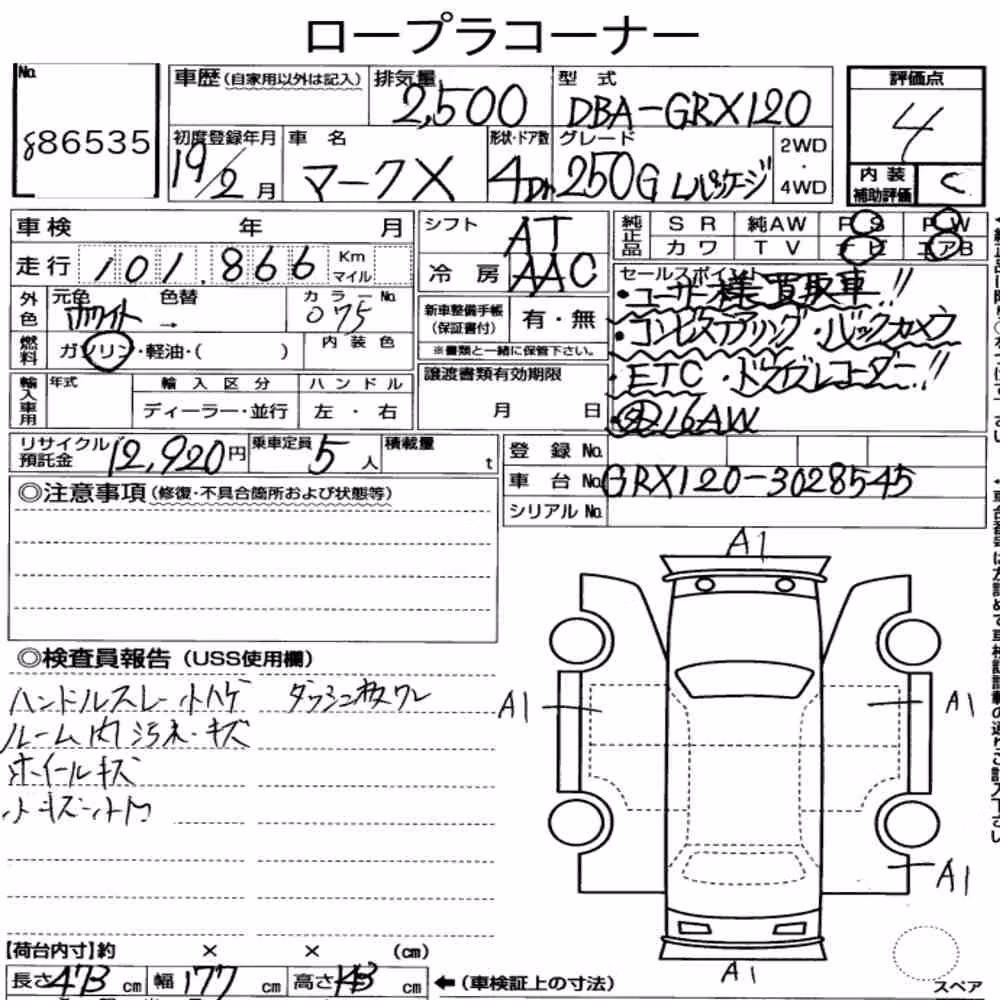 ロープラコーナー
No.
886535
車歴(自家用以外は記入)
排気量
2,500
型 式
DBA-GRX120
評価点
4
初度登録年月
19/2月
車 名
マークX
形状・ドア数
4Dr
グレード
250G Lパッケージ
2WD
・
4WD
内装
補助評価
C
車検 年 月
走行 101,866 Km
マイル
シフト
AT
冷 房
AAC
純正品
S R 純AW P S P W
カワ T V ナビ エアB
外色
元色 色替
ホワイト →
カラーNo.
075
新車整備手帳
(保証書付)
有・無
※書類と一緒に保管下さい。
燃料
ガソリン・軽油・( )
内装色
セールスポイント
・ユーザー様買取車!!
・コンビステアリング・バックカメラ
・ETC・ドライブレコーダー!!
16AW
輸入車用
年式
輸入区分
ハンドル
ディーラー・並行
左・右
譲渡書類有効期限
月 日
リサイクル
預託金
12,920円
乗車定員
5人
積載量
t
登 録 No.
車 台 No. GRX120-3028545
シリアル No.
◎注意事項(修復・不具合箇所および状態等)
◎検査員報告(USS使用欄)
ハンドルスレ・ハゲ ダッシュ
ルーム内汚れ・キズ
ホイールキズ
A1
A1
A1
A1
A1
【荷台内寸】約 × × (cm)
長さ473cm 幅177cm 高さ143cm ←(車検証上の寸法)
スペア